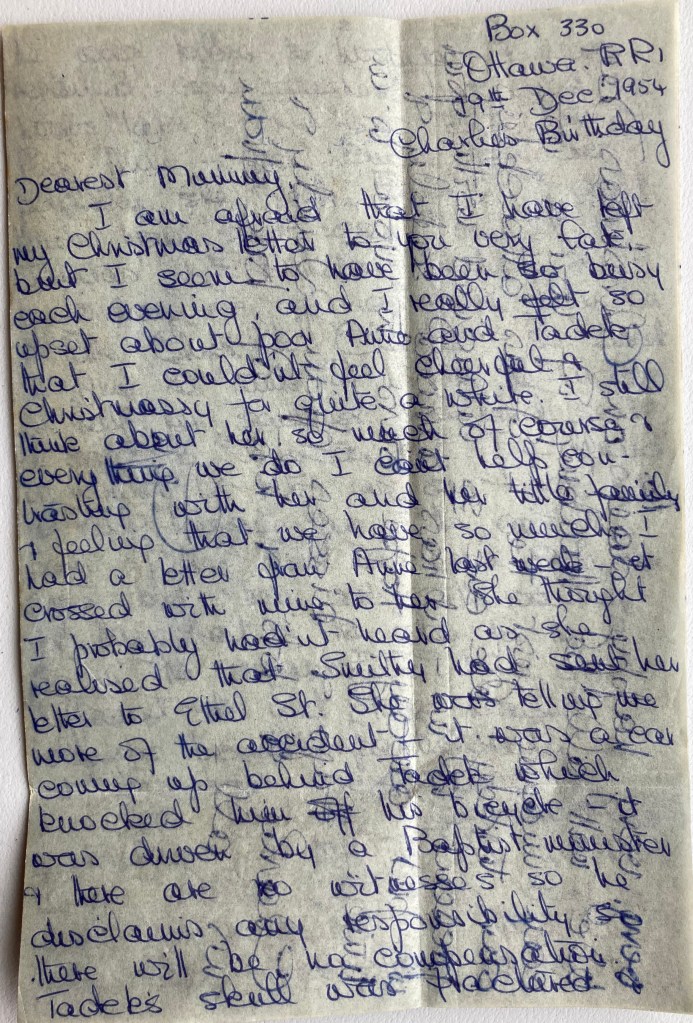 Box 330
Ottawa. RR1
19th Dec. 1954
Charlie's Birthday
Dearest Mummy.
I am afraid that I have left
my Christmas letter to you very late,
but I seem to have been so busy
each evening, and I really felt so
upset about poor Anne and Tadek
that I couldn't feel cheerful &
Christmassy for quite a while. I still
think about her so much of course &
every thing we do I can't help con-
trasting with her and her little family
& feeling that we have so much. I
had a letter from Anne last week - it
crossed with mine to her. She thought
I probably hadn't heard as she
realised that Smithy had sent her
letter to Ethel St. She was telling me
more of the accident - It was a car
coming up behind Tadek which
knocked him off his bicycle - it
was driven by a Baptist minister
& there are no witnesses so he
disclaims any responsibility, so
there will be no compensation.
Tadek's skull was fractured